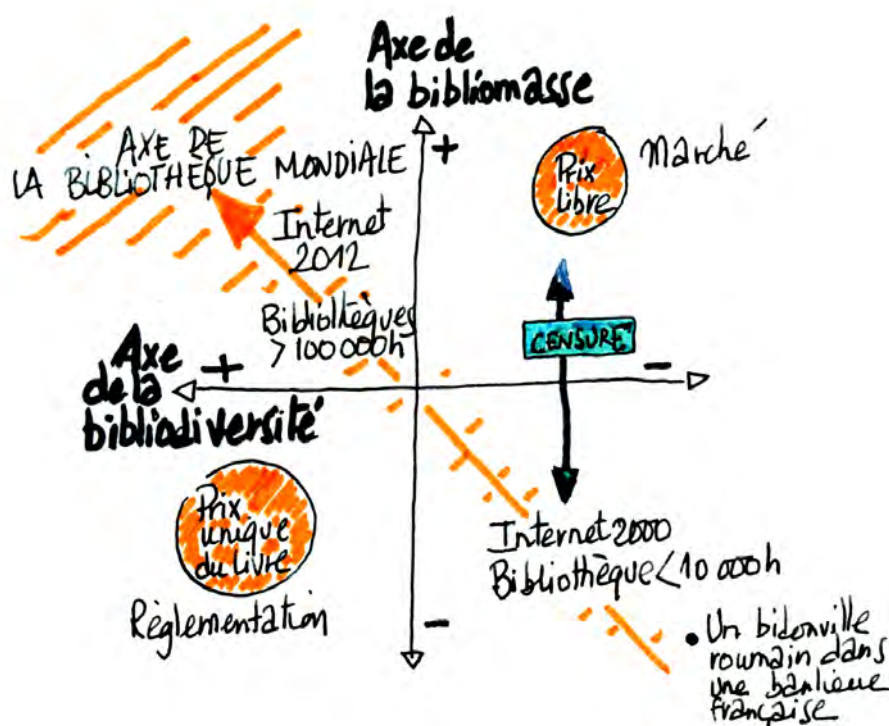 Axe de
la bibliomasse
+
AXE DE
LA BIBLIOTHÈQUE MONDIALE
Prix
libre
Marché
Internet
2012
Bibliothèques
> 100 000h
CENSURE
Axe
de la
bibliodiversité
+
-
Prix
unique
du livre
Règlementation
Internet 2000
Bibliothèque < 10 000h
-
• Un bidonville
roumain dans
une banlieue
française